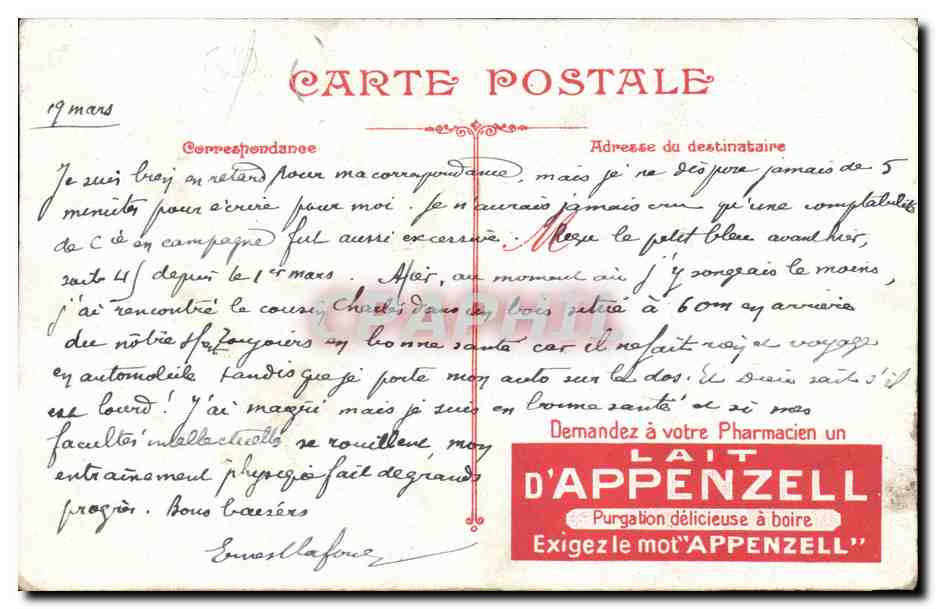 CARTE POSTALE
19 mars
Correspondance
Adresse du destinataire
Je suis bien en retard pour ma correspondance, mais je ne dispose jamais de 5
minutes pour écrire pour moi. Je n'aurais jamais cru qu'une comptabilité
de Cie en campagne fut aussi excessive. reçu le petit bleu avant hier,
daté depuis le 1er mars. Hier, au moment où j'y songeais le moins,
j'ai rencontré le cousin Charles dans un bois situé à 60m en arrière
du nôtre Toujours en bonne santé car il ne fait rien et voyage
en automobile tandis que je porte mon auto sur le dos. Et Dieu sait s'il
est lourd! J'ai maigri mais je suis en bonne santé et si mes
facultés intellectuelles se rouillent, mon
entraînement physique fait de grands
progrès. Bons baisers
Demandez à votre Pharmacien un
LAIT
D'APPENZELL
Purgation délicieuse à boire
Exigez le mot "APPENZELL"
CPAPHIL